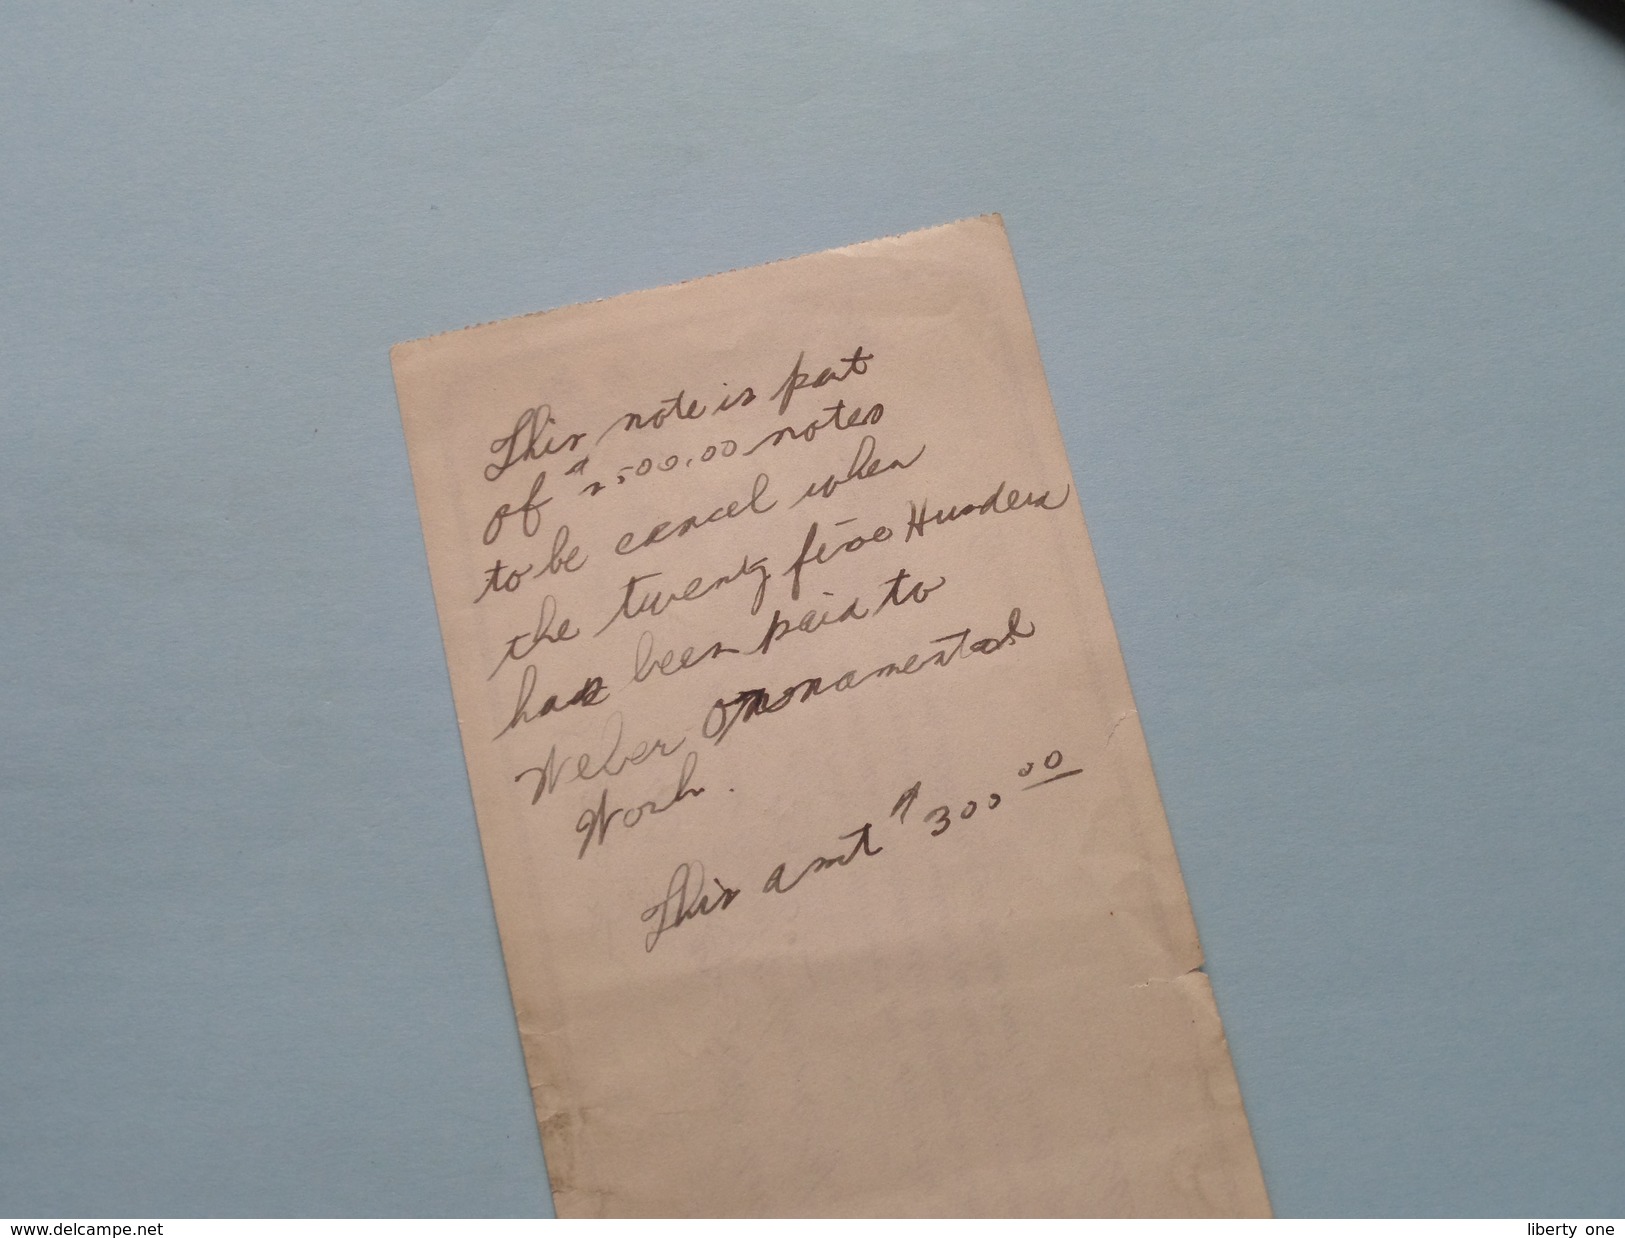 This note is part
of $2500.00 notes
to be cancel when
the twenty five Hunderd
has been paid to
Weber Ornamental
Work.
This amt $300.00
www.delcampe.net
liberty one